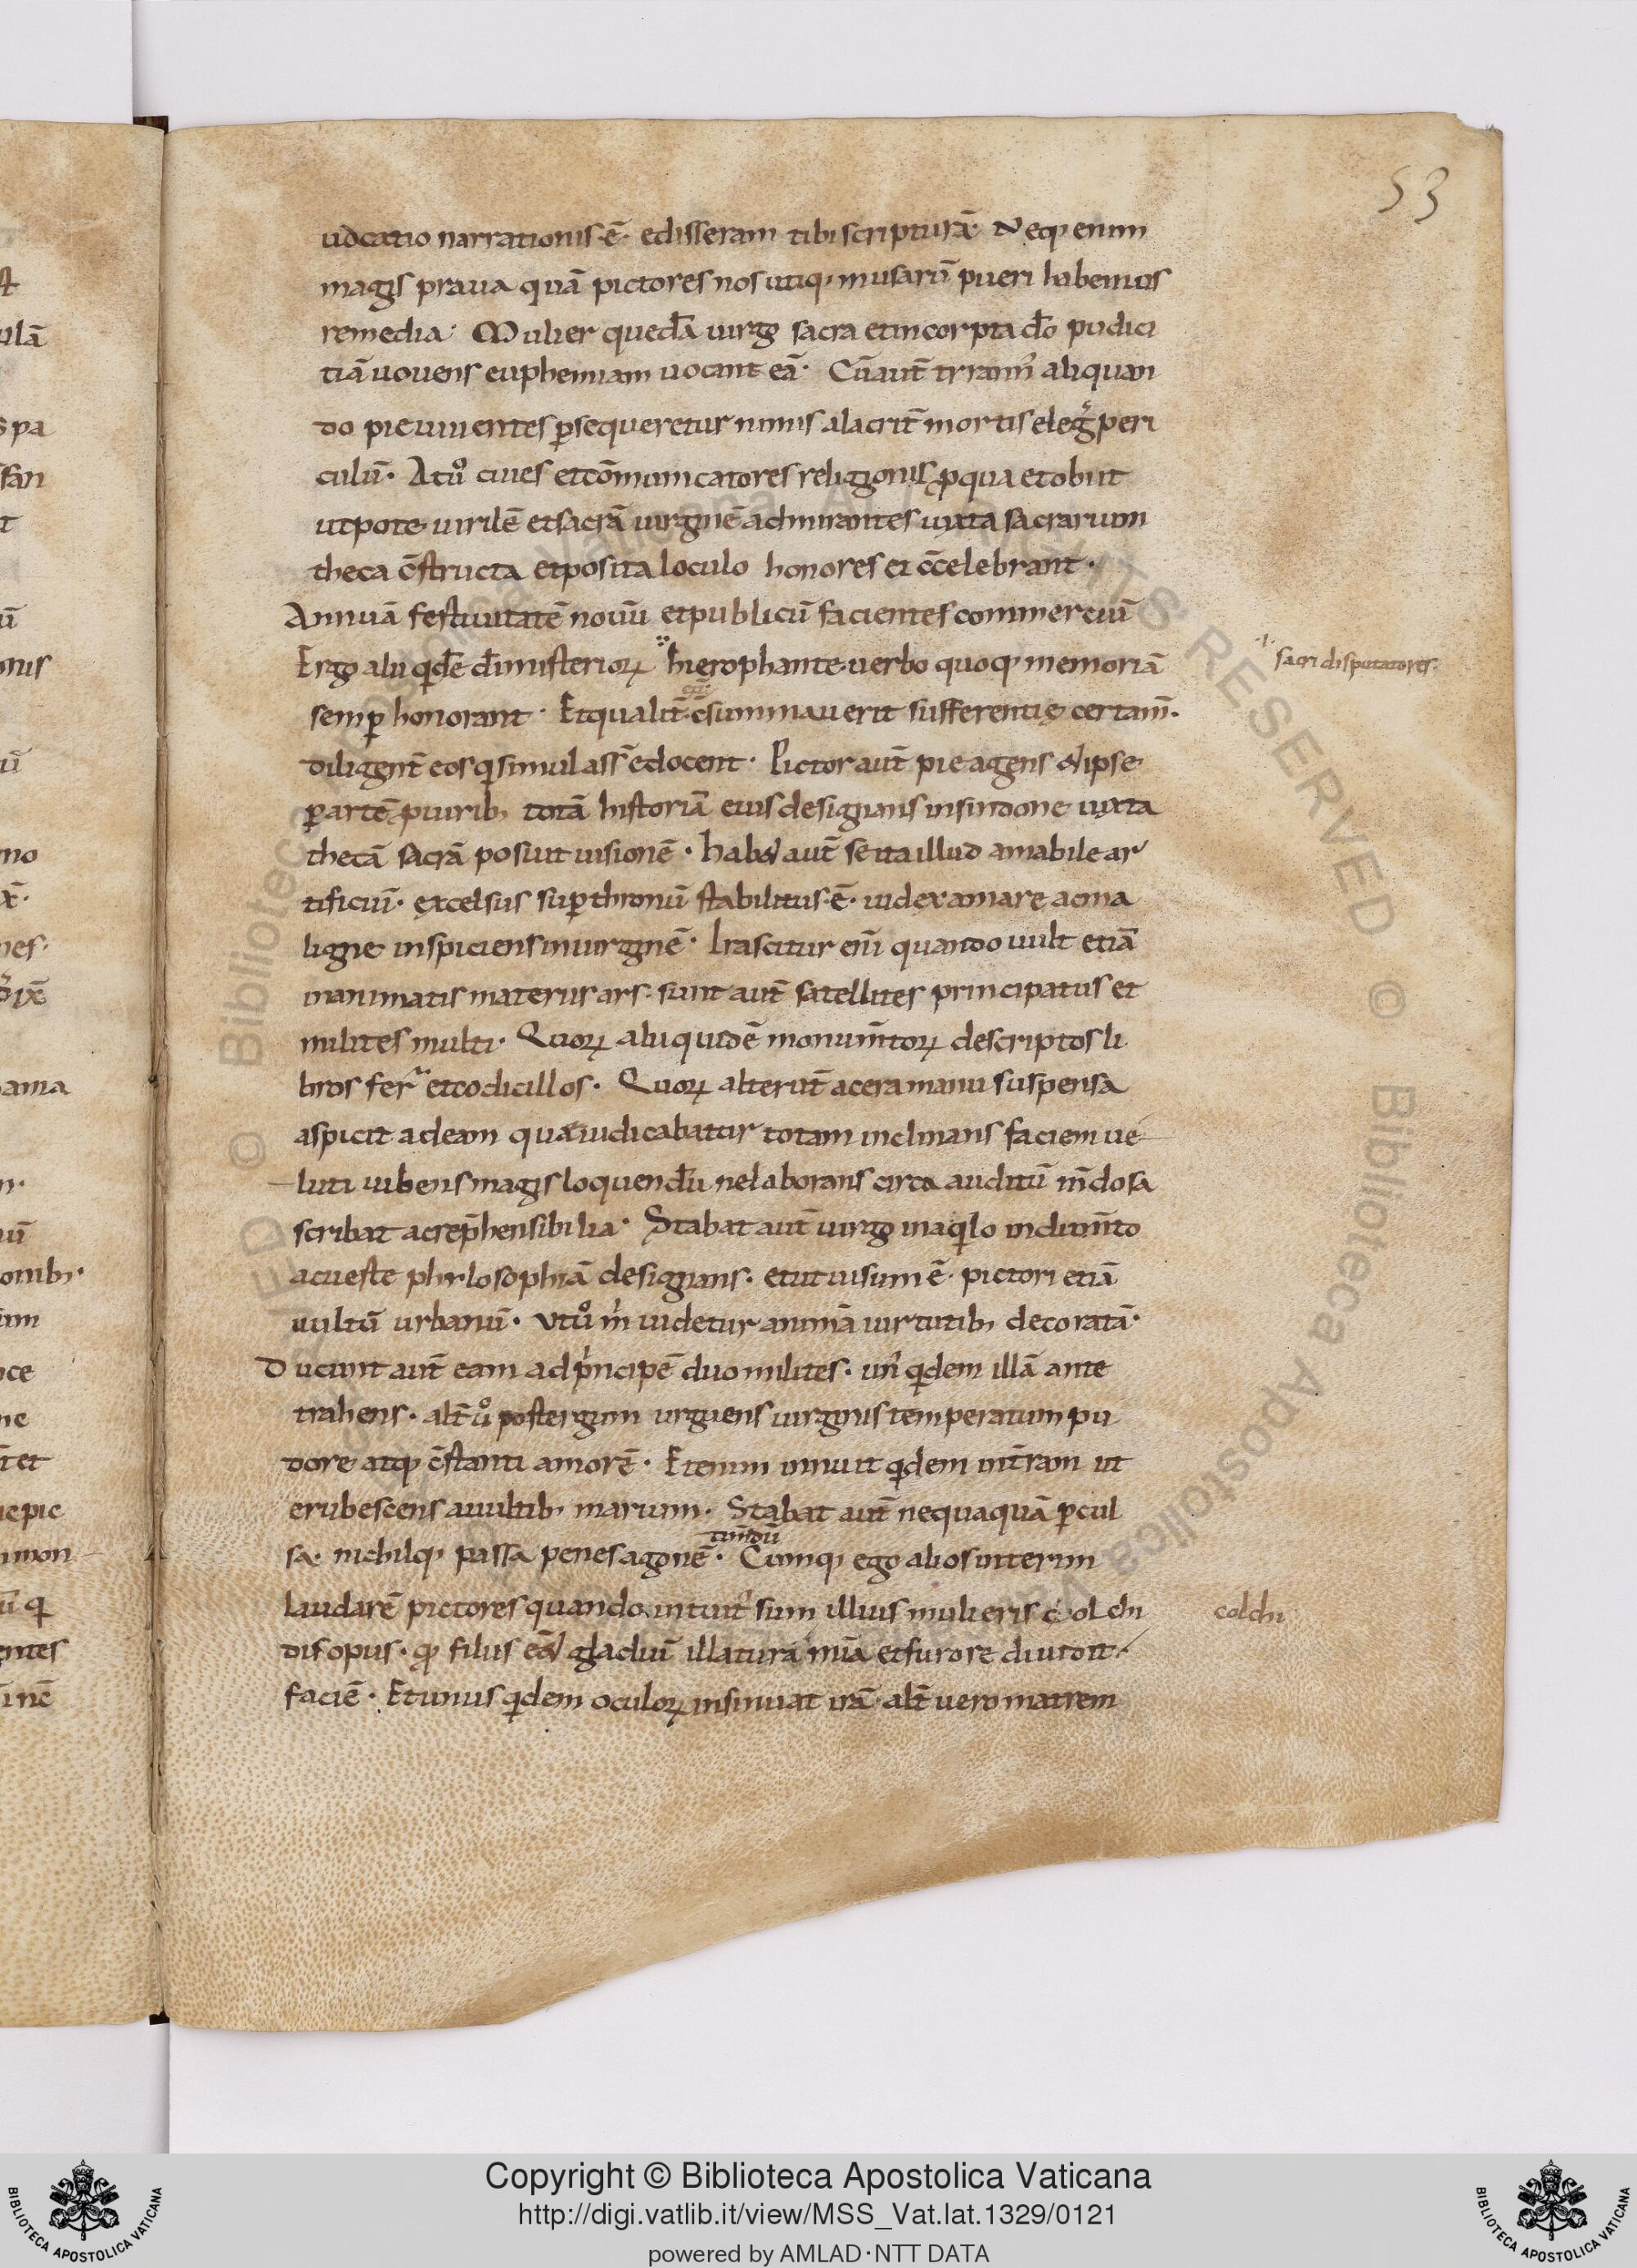 53
uocatio narrationis·ē· edisseram tibi scripturā· Neq; enim
magis praua quā pictores nos utiq; musarū pueri habemus
remedia· Mulier quedā uirgo sacra et incorpta dō pudici
tiā uouens euphemiam uocant eā· Cū aut̄ tyrann᾽ aliquan
do pie uiuentes ꝑsequeretur nimis alacrit̄ mortis eleg̃ peri
culū· At uº ciues et cōmunicatores religionis ꝓ qua et obiit
utpote uirilē et sacrā uirginē admirantes iuxta sacrarum
theca c̄structa et posita loculo honores ei c̄celebrant·
Annuā festiuitatē nouū et publicū facientes commerciū
Ergo alii qđē đi misterioꝝ hierophante uerbo quoq; memoriā
·i· sacri disputatores·
semꝑ honorant· Et qualit̄ c̄summauerit sufferentię certam̄·
cū
diligent̄ eos q simul ass̄ edocent· Pictor aut̄ pie agens & ipse
ꝑ artē ꝓ uirib; totā historiā eius designans in sindone iuxta
thecā sacrā posuit uisionē· hab& aut̄ se ita illud amabile ar
tificiū· excelsus suꝑ thronū stabilitus·ē· iudex amare ac ma
ligne inspiciens in uirginē· Irascitur eni quando uult etiā
inanimatis materiis ars· sunt aut̄ satellites principatus et
milites multi· Quoꝝ alii quidē monum̄toꝝ descriptos li
bros fer̃ et codicillos· Quoꝝ alterut̄ a cera manu suspensa
aspicit ad eam quę iudicabatur totam inclinans faciem ue
luti iubens magis loquendū ne laborans circa auditū m̄dosa
scribat ac rep̄hensibilia· Stabat aut̄ uirgo in aqlo indum̄to
ac ueste phylosophiā designans· et ut uisum ē· pictori etiā
uultū urbanū· Vt uº m̍ uidetur animā uirtutib; decoratā·
Ducunt aut̄ eam ad pncipē duo milites· un᾽ qdem illā ante
trahens· alt̄ uº post ergum urguens uirginis temperatum pu
dore atq; c̄stanti amorē· Etenim innuit qdem int̄ram ut
erubescens a uultib; marium· Stabat aut̄ nequaquā ꝑcul
sa· nichilq; passa penes agonē· Cumq; ego alios interim
timdū
laudarē pictores quando intuit᾽ sum illius mulieris colchi
colchi
dis opus· q filiis eēt gladiū illatura mīa et furore diuidit
faciē· Et unus qdem oculoꝝ insinuat irā· alt̄ uero matrem
Copyright © Biblioteca Apostolica Vaticana
http://digi.vatlib.it/view/MSS_Vat.lat.1329/0121
powered by AMLAD·NTT DATA
BIBLIOTECA APOSTOLICA VATICANA
BIBLIOTECA APOSTOLICA VATICANA